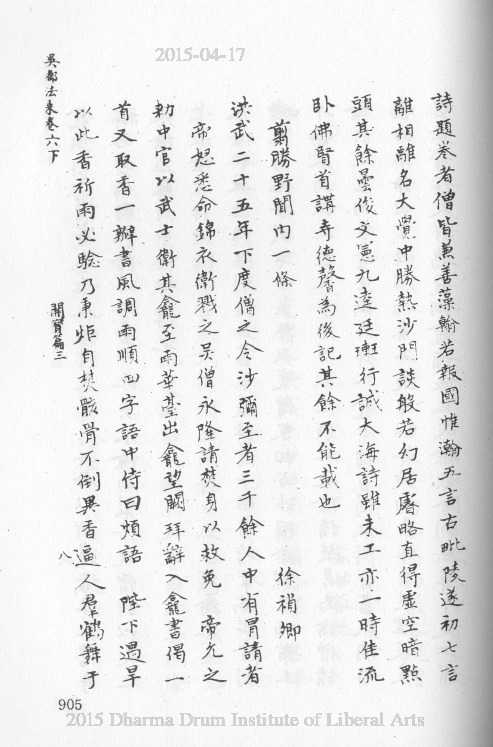 2015-04-17
詩題卷者僧皆兼善藻翰若報國惟瀚五言古毗陵遂初七言
離相離名大覺中勝熱沙門談般若幻居睿略直得虛空暗點
頭其餘曇俊文憲九逵廷璭行誠大海詩雖未工亦一時佳流
臥佛賢首講寺德馨為後記其餘不能載也
翦勝野聞內一條 徐禎卿
洪武二十五年下度僧之令沙彌至者三千餘人中有冒請者
帝怒悉命錦衣衛戮之吳僧永隆請焚身以救免 帝允之
勑中官以武士衛其龕至雨華臺出龕望闕拜辭入龕書偈一
首又取香一瓣書風調雨順四字語中侍曰煩語 陛下遇旱
以此香祈雨必驗乃秉炬自焚骸骨不倒異香逼人羣鶴舞于
吳都法乘卷六下 開實篇三 八
905
2015 Dharma Drum Institute of Liberal Arts